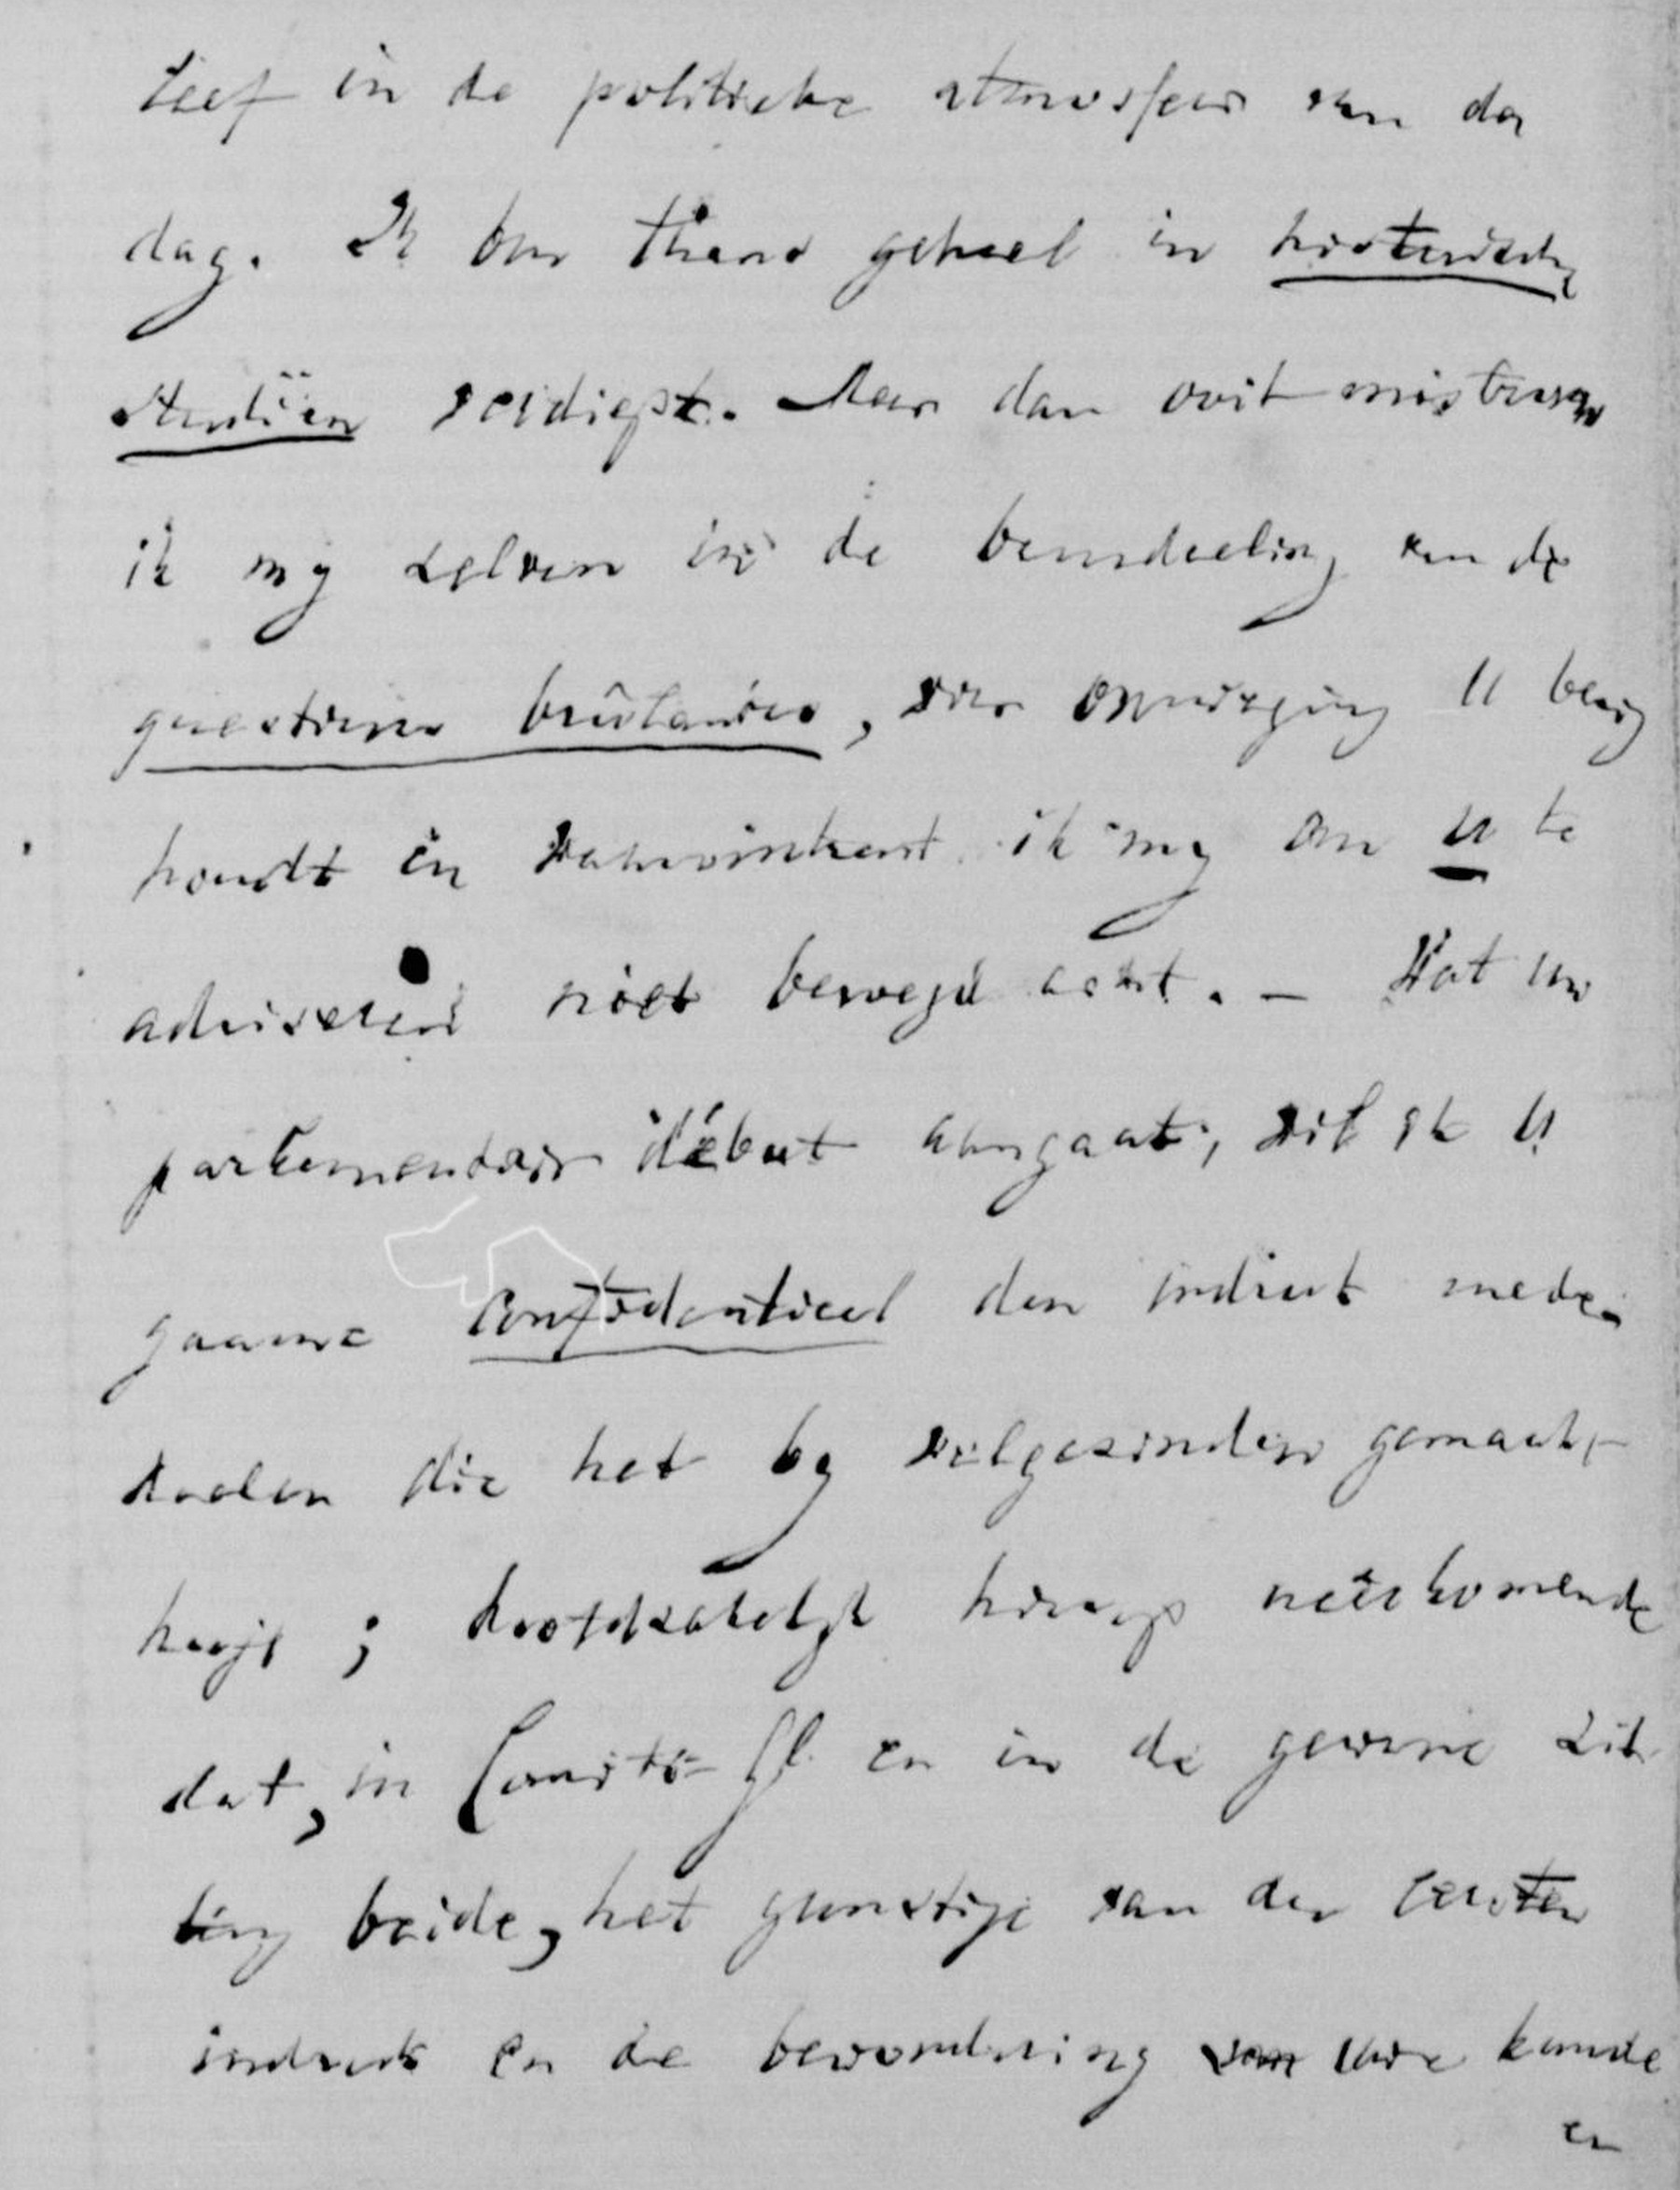 leef in de politieke atmosfeer van den
dag. Ik ben thans geheel in historische
studiën verdiept. Meer dan ooit mistrouw
ik mij zelven in de beoordeeling van de
questions brûlantes, wier overweging U bezig
houdt en daarom ik mij om U te
adviseren niet bevoegd acht. – Wat uw
parlementair début aangaat, wil ik U
gaarne confidentieel den indruk mede-
deelen die het by welgezinden gemaakt
heeft; hoofdzakelijk hierop neêrkomende
dat, in Comité-Gl. en in de gewone zit
ting beide, het gunstige van den eersten
indruk en de bewondering van uwe kunde
en